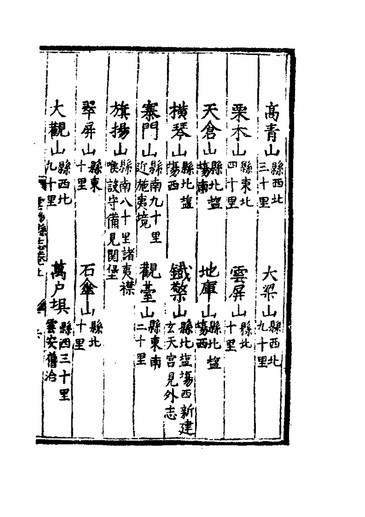 高青山縣西北三十里 大梁山縣西北九十里
栗木山縣東北四十里 雲屏山縣北十里
天倉山縣北盐塲南 地庫山縣北盐塲西
橫琴山縣北盐塲西 鐵檠山縣北盐塲西新建玄天宫見外志
寨門山縣南九十里近施夷境 觀臺山縣東南二十里
旗揚山縣南八十里諸夷襟喉設守備見関堡
翠屏山縣東十里 石傘山縣北十里
大觀山縣西北九十里 萬户垻縣西三十里雲安舊治